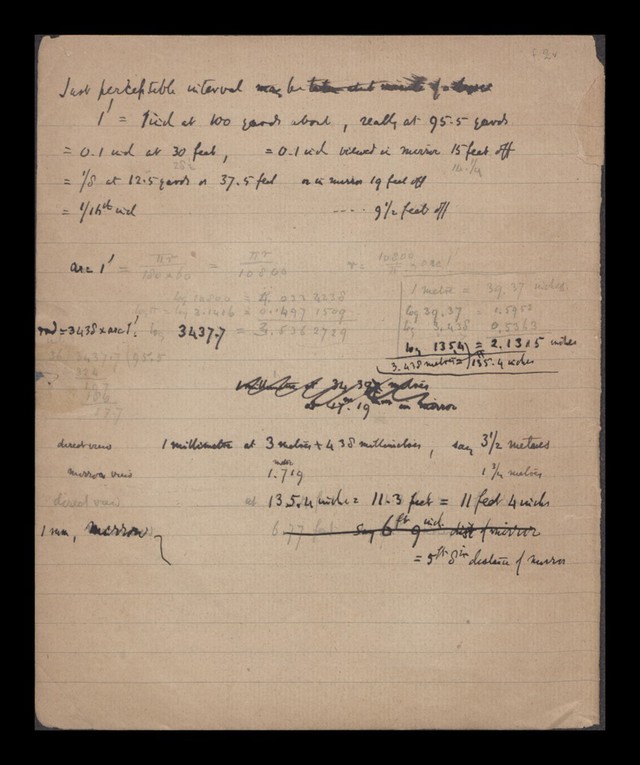 Just perceptible interval may be
1' = 1 inch at 100 yards about, really at 95.5 yards
= 0.1 inch at 30 feet, = 0.1 inch viewed in mirror 15 feet off
= 1/8 at 12.5 yards or 37.5 feet or in mirror 19 feet off
= 1/16th inch ---- 9 1/2 feet off
arc 1' = πr / 180×60 = πr / 10800
r = 10800 / π × arc 1'
1 metre = 39.37 inches
log 10800 = 4.0334238
log 39.37 = 1.5952
log 3.1416 = 0.4971509
log 3.438 0.5363
rad = 3438 × arc 1' log 3437.7 = 3.5362729
log 135.4 = 2.1315 inches
3.438 metres = 135.4 inches
3437.7 (95.5
324
metres
in mirror
direct view 1 millimetre at 3 metres + 438 millimetres, say 3 1/2 metres
mirror view 1.719 1 3/4 metres
direct view at 135.4 inches = 11.3 feet = 11 feet 4 inches
1 mm, mirror 6.77 feet say 6 ft 9 inch dist of mirror
= 5 ft 8 in distance of mirror